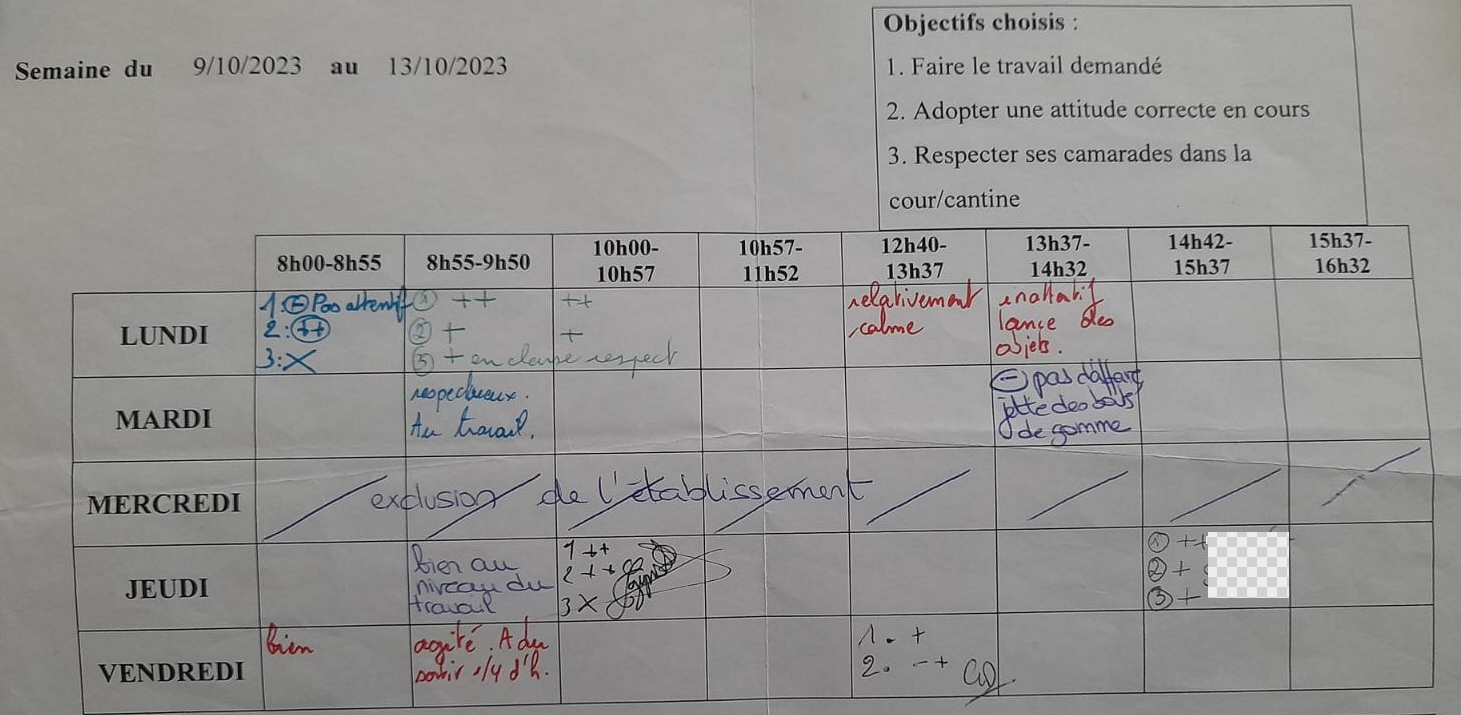 Semaine du 9/10/2023 au 13/10/2023
Objectifs choisis :
1. Faire le travail demandé
2. Adopter une attitude correcte en cours
3. Respecter ses camarades dans la
cour/cantine
8h00-8h55 8h55-9h50 10h00-10h57 10h57-11h52 12h40-13h37 13h37-14h32 14h42-15h37 15h37-16h32
LUNDI
1:⊖ Pas attentif
2:(++)
3:X
① ++
② +
③ + en classe respect
++
+
relativement
calme
inattentif
lance des
objets.
MARDI
respectueux.
Au travail.
⊖ pas d'affaire
jette des bouts
de gomme
MERCREDI
exclusion de l'établissement
JEUDI
bien au
niveau du
travail
1 ++
2 ++
3 X
① ++
② +
③ +
VENDREDI
bien
agité. A du
sortir 1/4 d'h.
1. +
2. -+